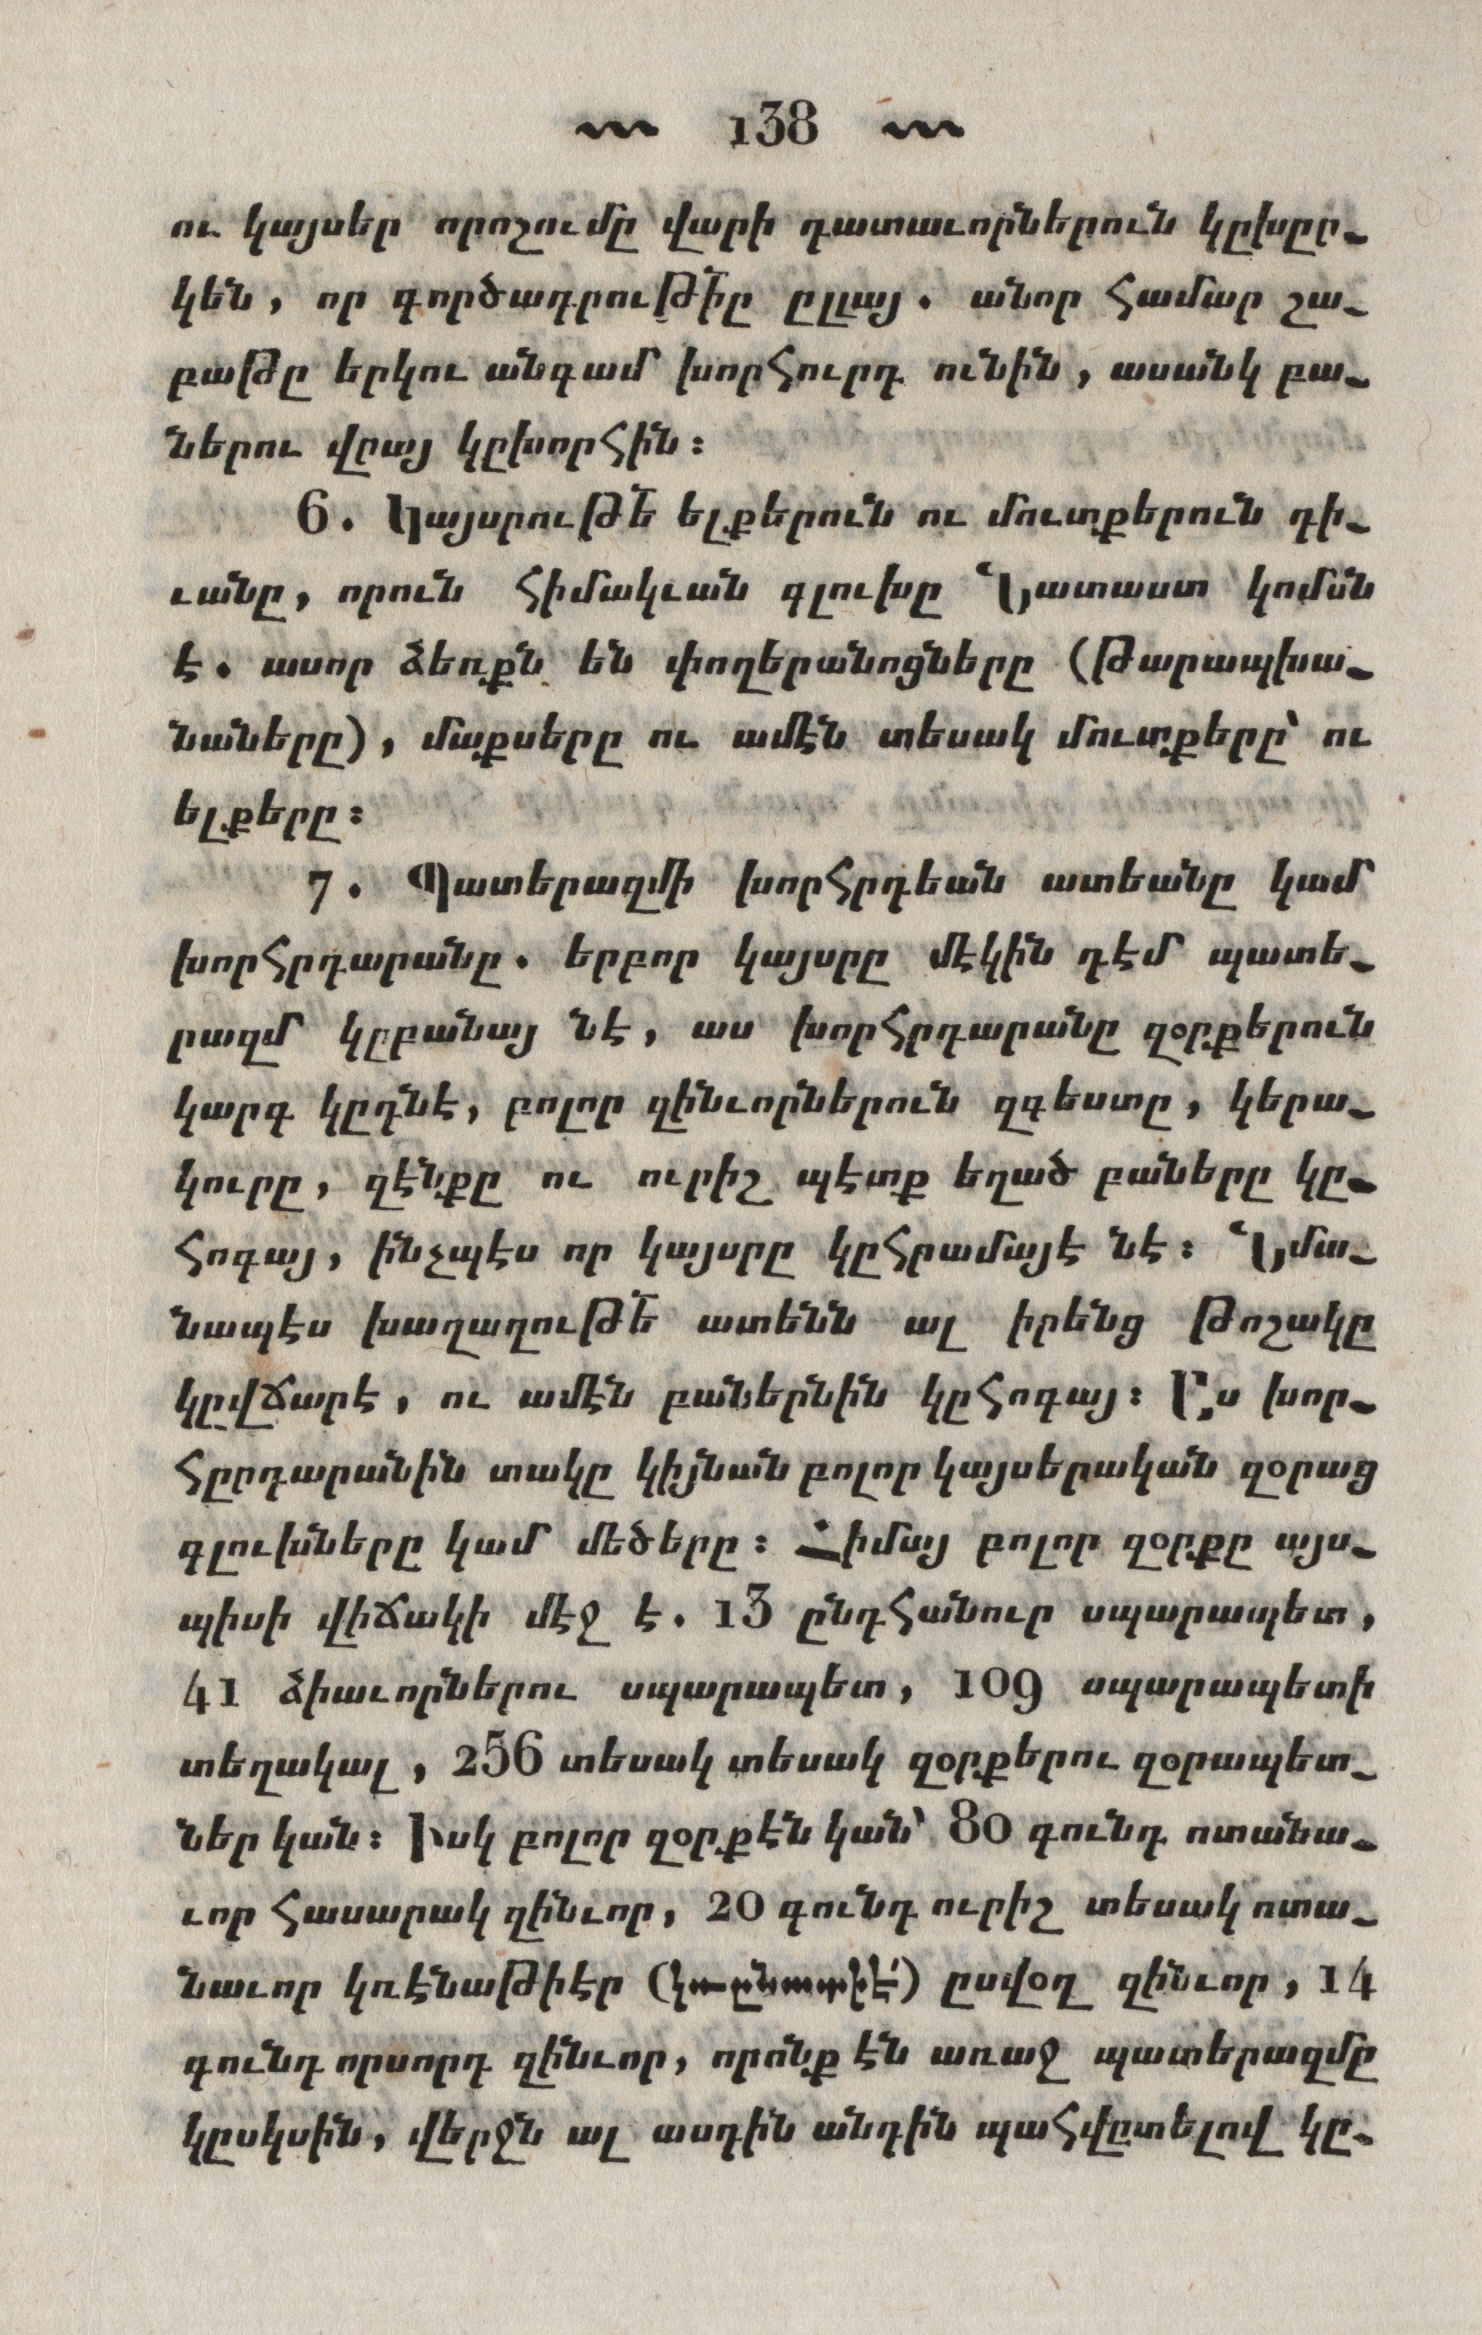 138
ու կայսեր որոշումը վարի դատաւորներուն կըխըր֊
կեն, որ գործադրութի՟ը ըլլայ. անոր համար շա֊
բաթը երկու անգամ խորհուրդ ունին, ասանկ բա֊
ներու վըայ կըխորհին։
6. Կայսրութե՟ ելքերուն ու մուտքերուն դի֊
ւանը, որուն հիմակւան գլուխը Նատաստ կոմսն
է. ասոր ձեռքն են փողերանոցները (թարապխա֊
նաները), մաքսերը ու ամէն տեսակ մուտքերը՝ ու
ելքերը։
7. Պատերազմի խորհրդեան ատեանը կամ
խորհրդարանը. երբոր կայսրը մէկին դէմ պատե֊
րազմ կըբանայ նէ, աս խորհրդարանը զօրքերուն
կարգ կըդնէ, բոլոր զինւորներուն զգեստը, կերա֊
կուրը, զէնքը ու ուրիշ պէտք եղած բաները կը֊
հոգայ, ինչպէս որ կայսրը կըհրամայէ նէ։ Նմա֊
նապէս խաղաղութե՟ ատենն ալ իրենց թոշակը
կըվճարէ, ու ամէն բաներնին կըհոգայ։ Ըս խոր֊
հըրդարանին տակը կիյնան բոլոր կայսերական զօրաց
գլուխները կամ մեծերը։ Հիմայ բոլոր զօրքը այս֊
պիսի վիճակի մէջ է. 13 ընդհանուր սպարապետ,
41 ձիաւորներու սպարապետ, 109 սպարապետի
տեղակալ, 256 տեսակ տեսակ զօրքերու զօրապետ֊
ներ կան։ Իսկ բոլոր զօրքէն կան՝ 80 գունդ ոտանա֊
ւոր հասարակ զինւոր, 20 գունդ ուրիշ տեսակ ոտա֊
նաւոր կռէնաթիէր ըսվօղ զինւոր, 14
գունդ որսորդ զինւոր, որոնք էն առաջ պատերազմը
կըսկսին, վերջն ալ ասդին անդին պահվըտելով կը֊